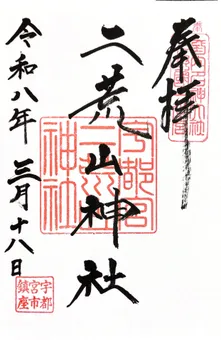 奉拝
二荒山神社
宇都宮
二荒山
神社
令和八年三月十八日
宇都
宮市
鎮座